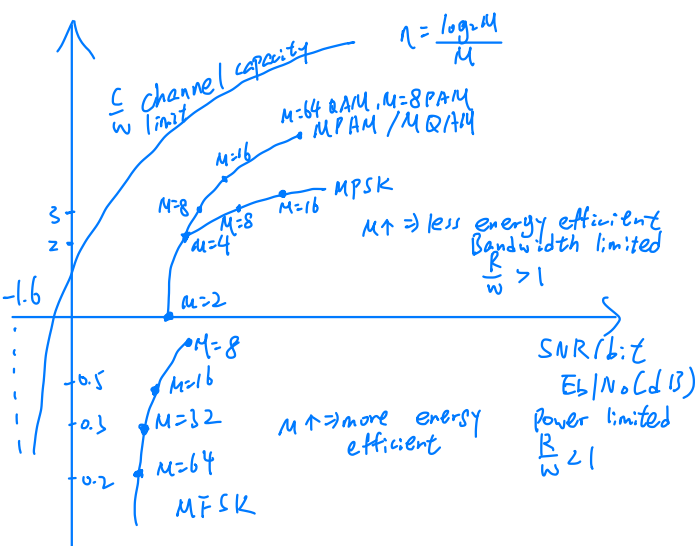 η = log₂M / M
C/W channel capacity
limit
M=64 QAM, M=8 PAM
MPAM / MQAM
M=16
MPSK
M=8
M=8
M=16
3
2
M=4
M↑ ⇒ less energy efficient
Bandwidth limited
R/W > 1
-1.6
M=2
M=8
SNR/bit
Eb/No(dB)
0.5
M=16
0.3
M=32
M↑⇒more energy
efficient
Power limited
R/W < 1
0.2
M=64
MFSK